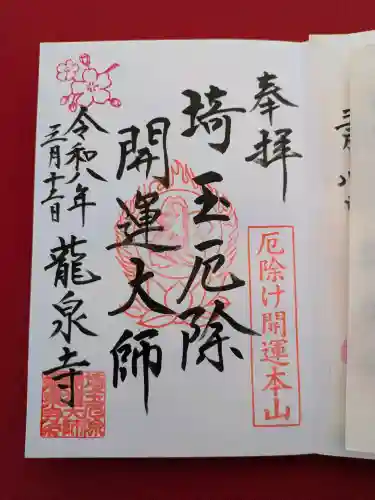 奉拝
厄除け開運本山
埼玉厄除
開運大師
令和八年
三月十二日
龍泉寺